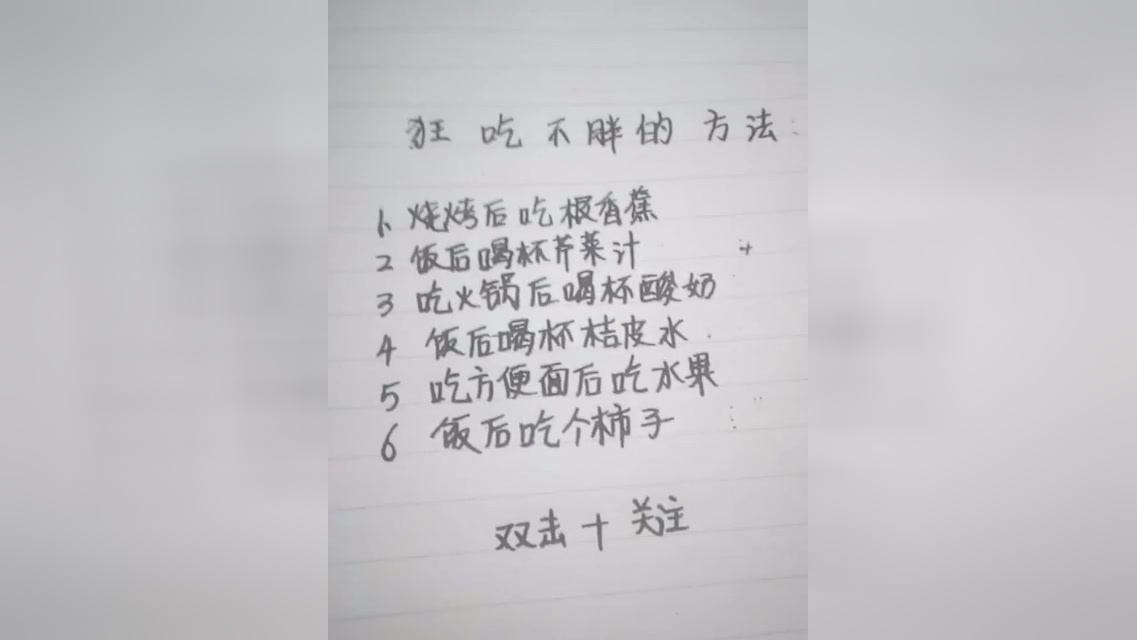 狂吃不胖的方法:
1、烧烤后吃根香蕉
2 饭后喝杯芹菜汁
3 吃火锅后喝杯酸奶
4 饭后喝杯桔皮水
5 吃方便面后吃水果
6 饭后吃个柿子
双击+关注